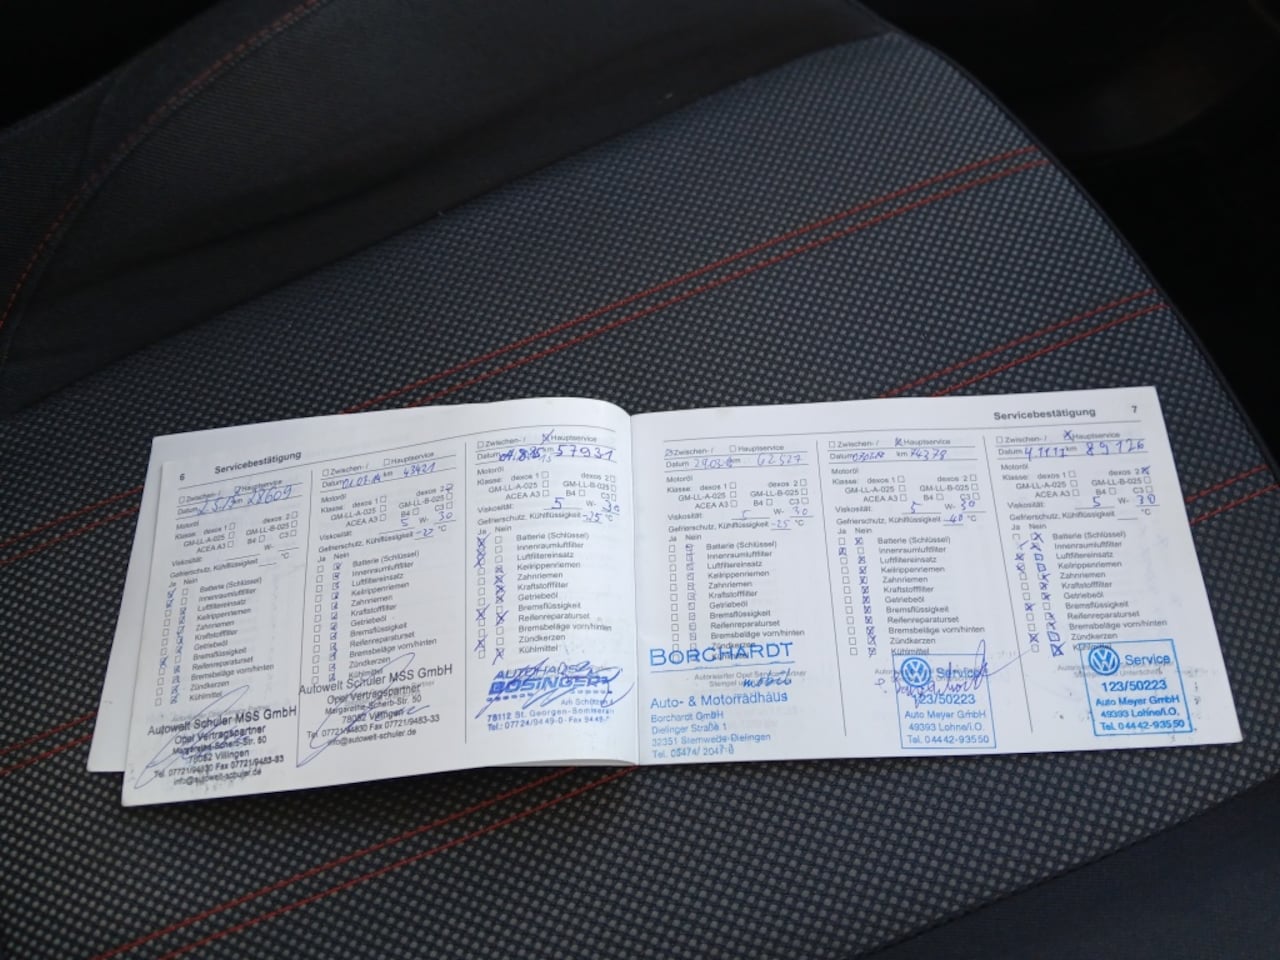 6 Servicebestätigung
Zwischen- / Hauptservice
Datum 28609
Motoröl
Klasse: dexos 1 dexos 2
GM-LL-A-025 GM-LL-B-025
ACEA A3 B4 C3
Viskosität: W-
Gefrierschutz, Kühlflüssigkeit °C
Ja Nein
Batterie (Schlüssel)
Innenraumluftfilter
Luftfiltereinsatz
Keilrippenriemen
Zahnriemen
Kraftstofffilter
Getriebeöl
Bremsflüssigkeit
Reifenreparaturset
Bremsbeläge vorn/hinten
Zündkerzen
Kühlmittel
Autowelt Schuler MSS GmbH
Opel Vertragspartner
Margarethe-Scherb-Str. 50
78052 Villingen
Tel. 07721/94830 Fax 07721/9483-33
info@autowelt-schuler.de
Zwischen- / Hauptservice
Datum km 43421
Motoröl
Klasse: dexos 1 dexos 2
GM-LL-A-025 GM-LL-B-025
ACEA A3 B4 C3
Viskosität: 5 W- 30
Gefrierschutz, Kühlflüssigkeit -22 °C
Ja Nein
Batterie (Schlüssel)
Innenraumluftfilter
Luftfiltereinsatz
Keilrippenriemen
Zahnriemen
Kraftstofffilter
Getriebeöl
Bremsflüssigkeit
Reifenreparaturset
Bremsbeläge vorn/hinten
Zündkerzen
Kühlmittel
Autowelt Schuler MSS GmbH
Opel Vertragspartner
Margarethe-Scherb-Str. 50
78052 Villingen
Tel. 07721/94830 Fax 07721/9483-33
info@autowelt-schuler.de
Zwischen- / Hauptservice
Datum km 57931
Motoröl
Klasse: dexos 1 dexos 2
GM-LL-A-025 GM-LL-B-025
ACEA A3 B4 C3
Viskosität: 5 W- 30
Gefrierschutz, Kühlflüssigkeit -25 °C
Ja Nein
Batterie (Schlüssel)
Innenraumluftfilter
Luftfiltereinsatz
Keilrippenriemen
Zahnriemen
Kraftstofffilter
Getriebeöl
Bremsflüssigkeit
Reifenreparaturset
Bremsbeläge vorn/hinten
Zündkerzen
Kühlmittel
AUTOHAUS
BÖSINGER
78112 St. Georgen
Tel.: 07724/9449-0
Servicebestätigung 7
Zwischen- / Hauptservice
Datum km 62527
Motoröl
Klasse: dexos 1 dexos 2
GM-LL-A-025 GM-LL-B-025
ACEA A3 B4 C3
Viskosität: 5 W- 30
Gefrierschutz, Kühlflüssigkeit -25 °C
Ja Nein
Batterie (Schlüssel)
Innenraumluftfilter
Luftfiltereinsatz
Keilrippenriemen
Zahnriemen
Kraftstofffilter
Getriebeöl
Bremsflüssigkeit
Reifenreparaturset
Bremsbeläge vorn/hinten
Zündkerzen
BORCHARDT
mobile
Auto- & Motorradhaus
Borchardt GmbH
Dielinger Straße 1
32351 Stemwede-Dielingen
Tel. 05474/
Zwischen- / Hauptservice
Datum km 74378
Motoröl
Klasse: dexos 1 dexos 2
GM-LL-A-025 GM-LL-B-025
ACEA A3 B4 C3
Viskosität: 5 W- 30
Gefrierschutz, Kühlflüssigkeit -40 °C
Ja Nein
Batterie (Schlüssel)
Innenraumluftfilter
Luftfiltereinsatz
Keilrippenriemen
Zahnriemen
Kraftstofffilter
Getriebeöl
Bremsflüssigkeit
Reifenreparaturset
Bremsbeläge vorn/hinten
Zündkerzen
Kühlmittel
Service
123/50223
Auto Meyer GmbH
49393 Lohne/i.O.
Tel. 04442-93550
Zwischen- / Hauptservice
Datum km 89126
Motoröl
Klasse: dexos 1 dexos 2
GM-LL-A-025 GM-LL-B-025
ACEA A3 B4 C3
Viskosität: 5 W- 30
Gefrierschutz, Kühlflüssigkeit °C
Ja Nein
Batterie (Schlüssel)
Innenraumluftfilter
Luftfiltereinsatz
Keilrippenriemen
Zahnriemen
Kraftstofffilter
Getriebeöl
Bremsflüssigkeit
Reifenreparaturset
Bremsbeläge vorn/hinten
Zündkerzen
Kühlmittel
Service
123/50223
Auto Meyer GmbH
49393 Lohne/i.O.
Tel. 04442-93550